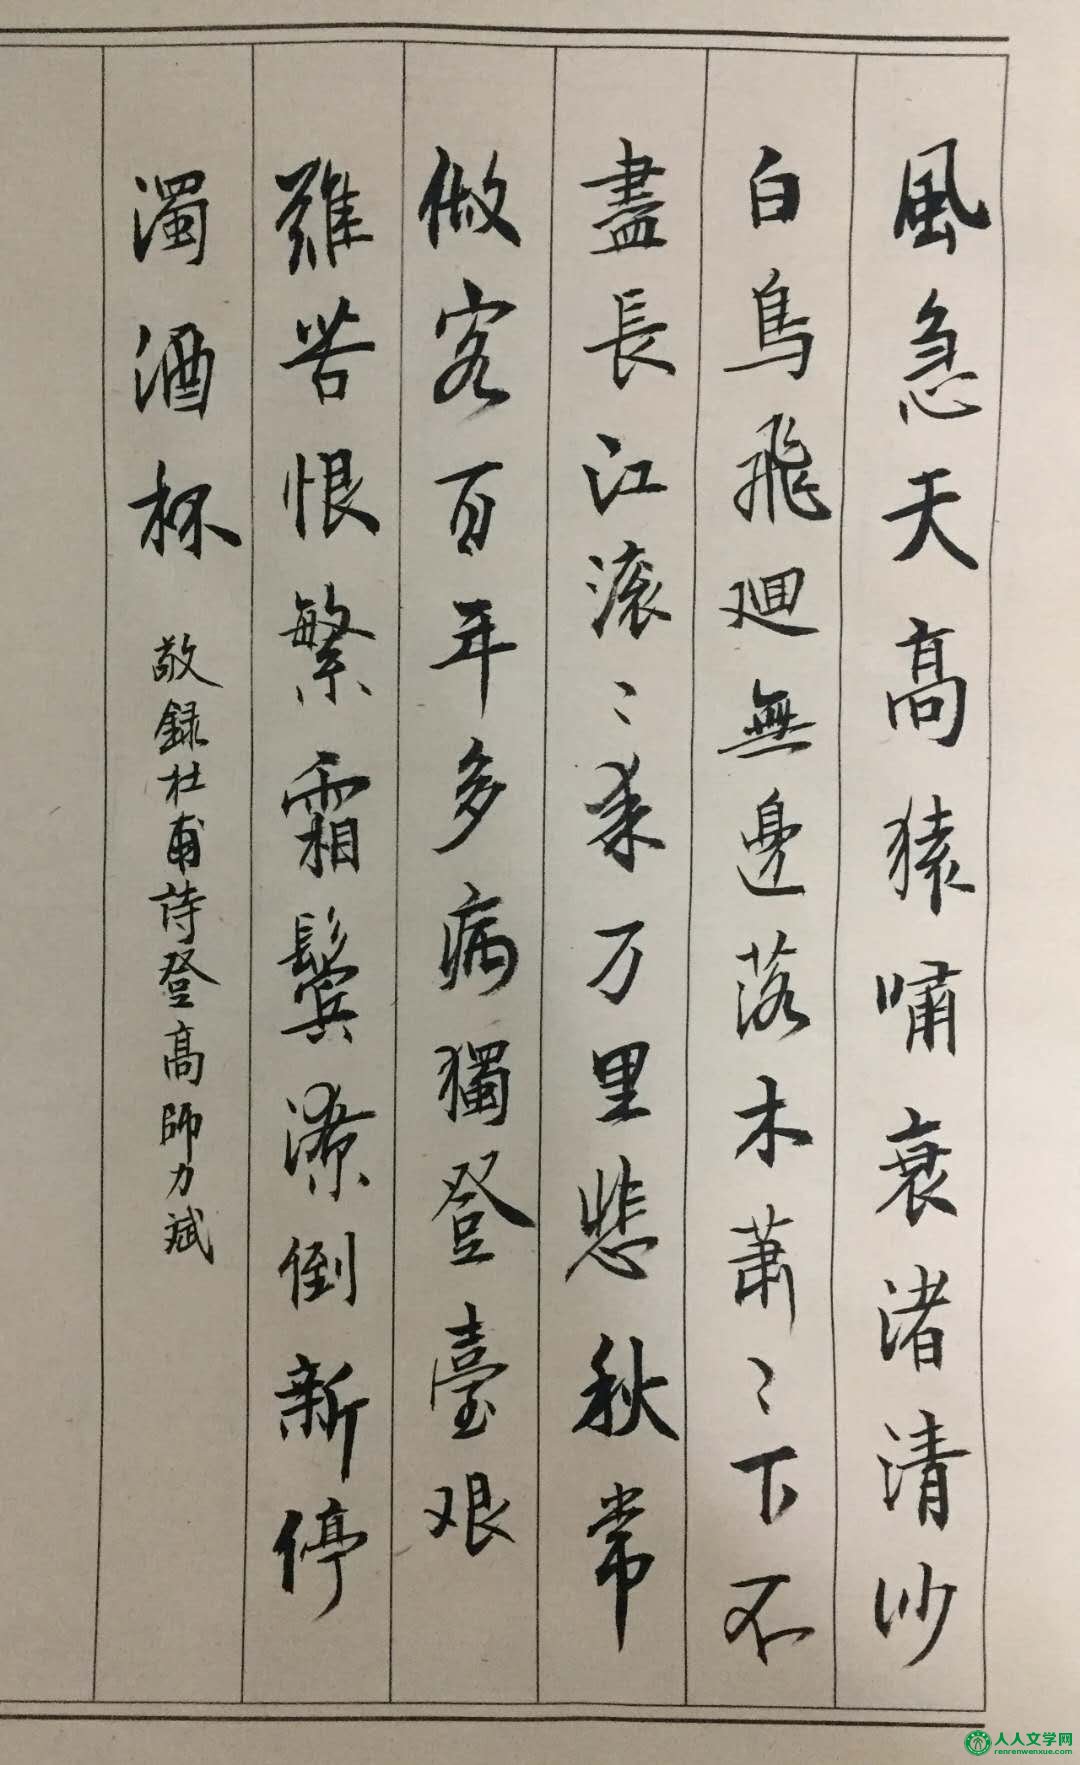 風急天高猿嘯衰渚清沙
白鳥飛廻無邊落木蕭〻下不
盡長江滚〻来万里悲秋常
做客百年多病獨登臺艱
難苦恨繁霜鬓潦倒新停
濁酒杯
敬録杜甫詩登高師力斌
人人文学网
renrenwenxue.com